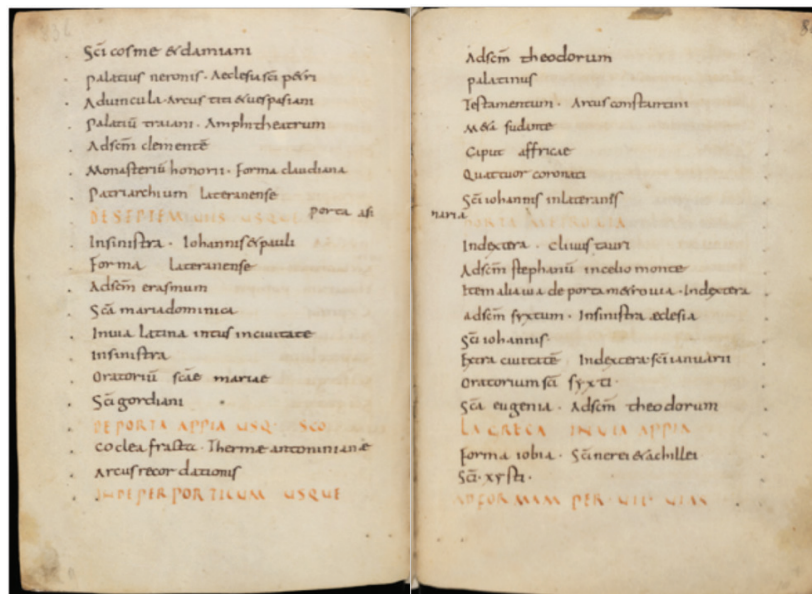 Sci cosme & damiani
palatius neronis · Aeclesia sci petri
Aduincula · Arcus titi & uespasiani
Palatiū traiani · Amphitheatrum
Adscm clementē
Monasteriū honorii · Forma claudiana
Patriarchium lateranense
DE SEPTEM USQUE porta asi
Insinistra · Iohannis & pauli
Forma lateranense
Adscm erasmum
Scā mariadominica
Inuia Latina intus inciuitate
insinistra
Oratoriū scae mariae
Sci gordiani
DE PORTA APPIA USQ SCO
Coclea fracta · Thermae antoninianae
Arcus recordationis
INDE PER PORTICUM USQUE
Adscm theodorum
palatinus
Testamentum · Arcus constantini
Meta sudante
Caput affricae
Quattuor coronati
Sci iohannis inlateranis
naria
PORTA METROUIA
Indextera · cliuus tauri
Adscm stephanū incelio monte
Item alia uia de porta metrouia · Indextera
adscm syxtum · Insinistra aeclesia
Sci iohannis
Extra ciuitatē Indextera sci ianuarii
Oratorium sci syxti ·
Scā eugenia · Adscm theodorum
LA GRECA IN UIA APPIA
Forma iobia · Sci nerei & achillei
Sci · xysti ·
AD FORMAM PER UII UIAS